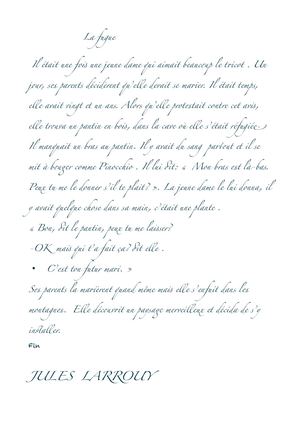 La fugue
Il était une fois une jeune dame qui aimait beaucoup le tricot . Un
jour, ses parents décidèrent qu'elle devait se marier. Il était temps,
elle avait vingt et un ans. Alors qu'elle protestait contre cet avis,
elle trouva un pantin en bois, dans la cave où elle s'était réfugiée.
Il manquait un bras au pantin. Il y avait du sang partout et il se
mit à bouger comme Pinocchio . Il lui dit: « Mon bras est là-bas.
Peux tu me le donner s'il te plait? ». La jeune dame le lui donna, il
y avait quelque chose dans sa main, c'était une plante .
« Bon, dit le pantin, peux tu me laisser?
-OK mais qui t'a fait ça? dit elle .
• C'est ton futur mari. »
Ses parents la marièrent quand même mais elle s'enfuit dans les
montagnes. Elle découvrit un paysage merveilleux et décida de s'y
installer.
Fin
JULES LARROUY